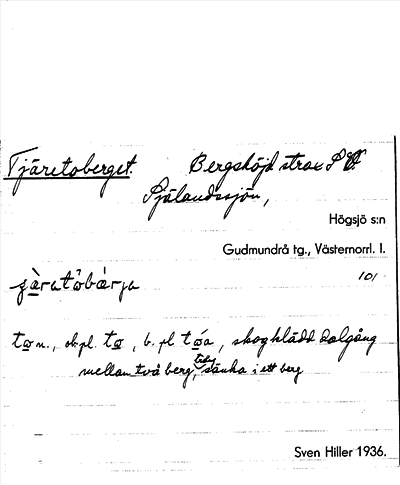 Tjäretoberget. Bergshöjd strax S Ö.
Själandssjön,
Högsjö s:n
Gudmundrå tg., Västernorrl. l.
101
to n., ob.pl. to, b. pl tóa, skogklädd dalgång
mellan två berg, sänka i ett berg
Sven Hiller 1936.